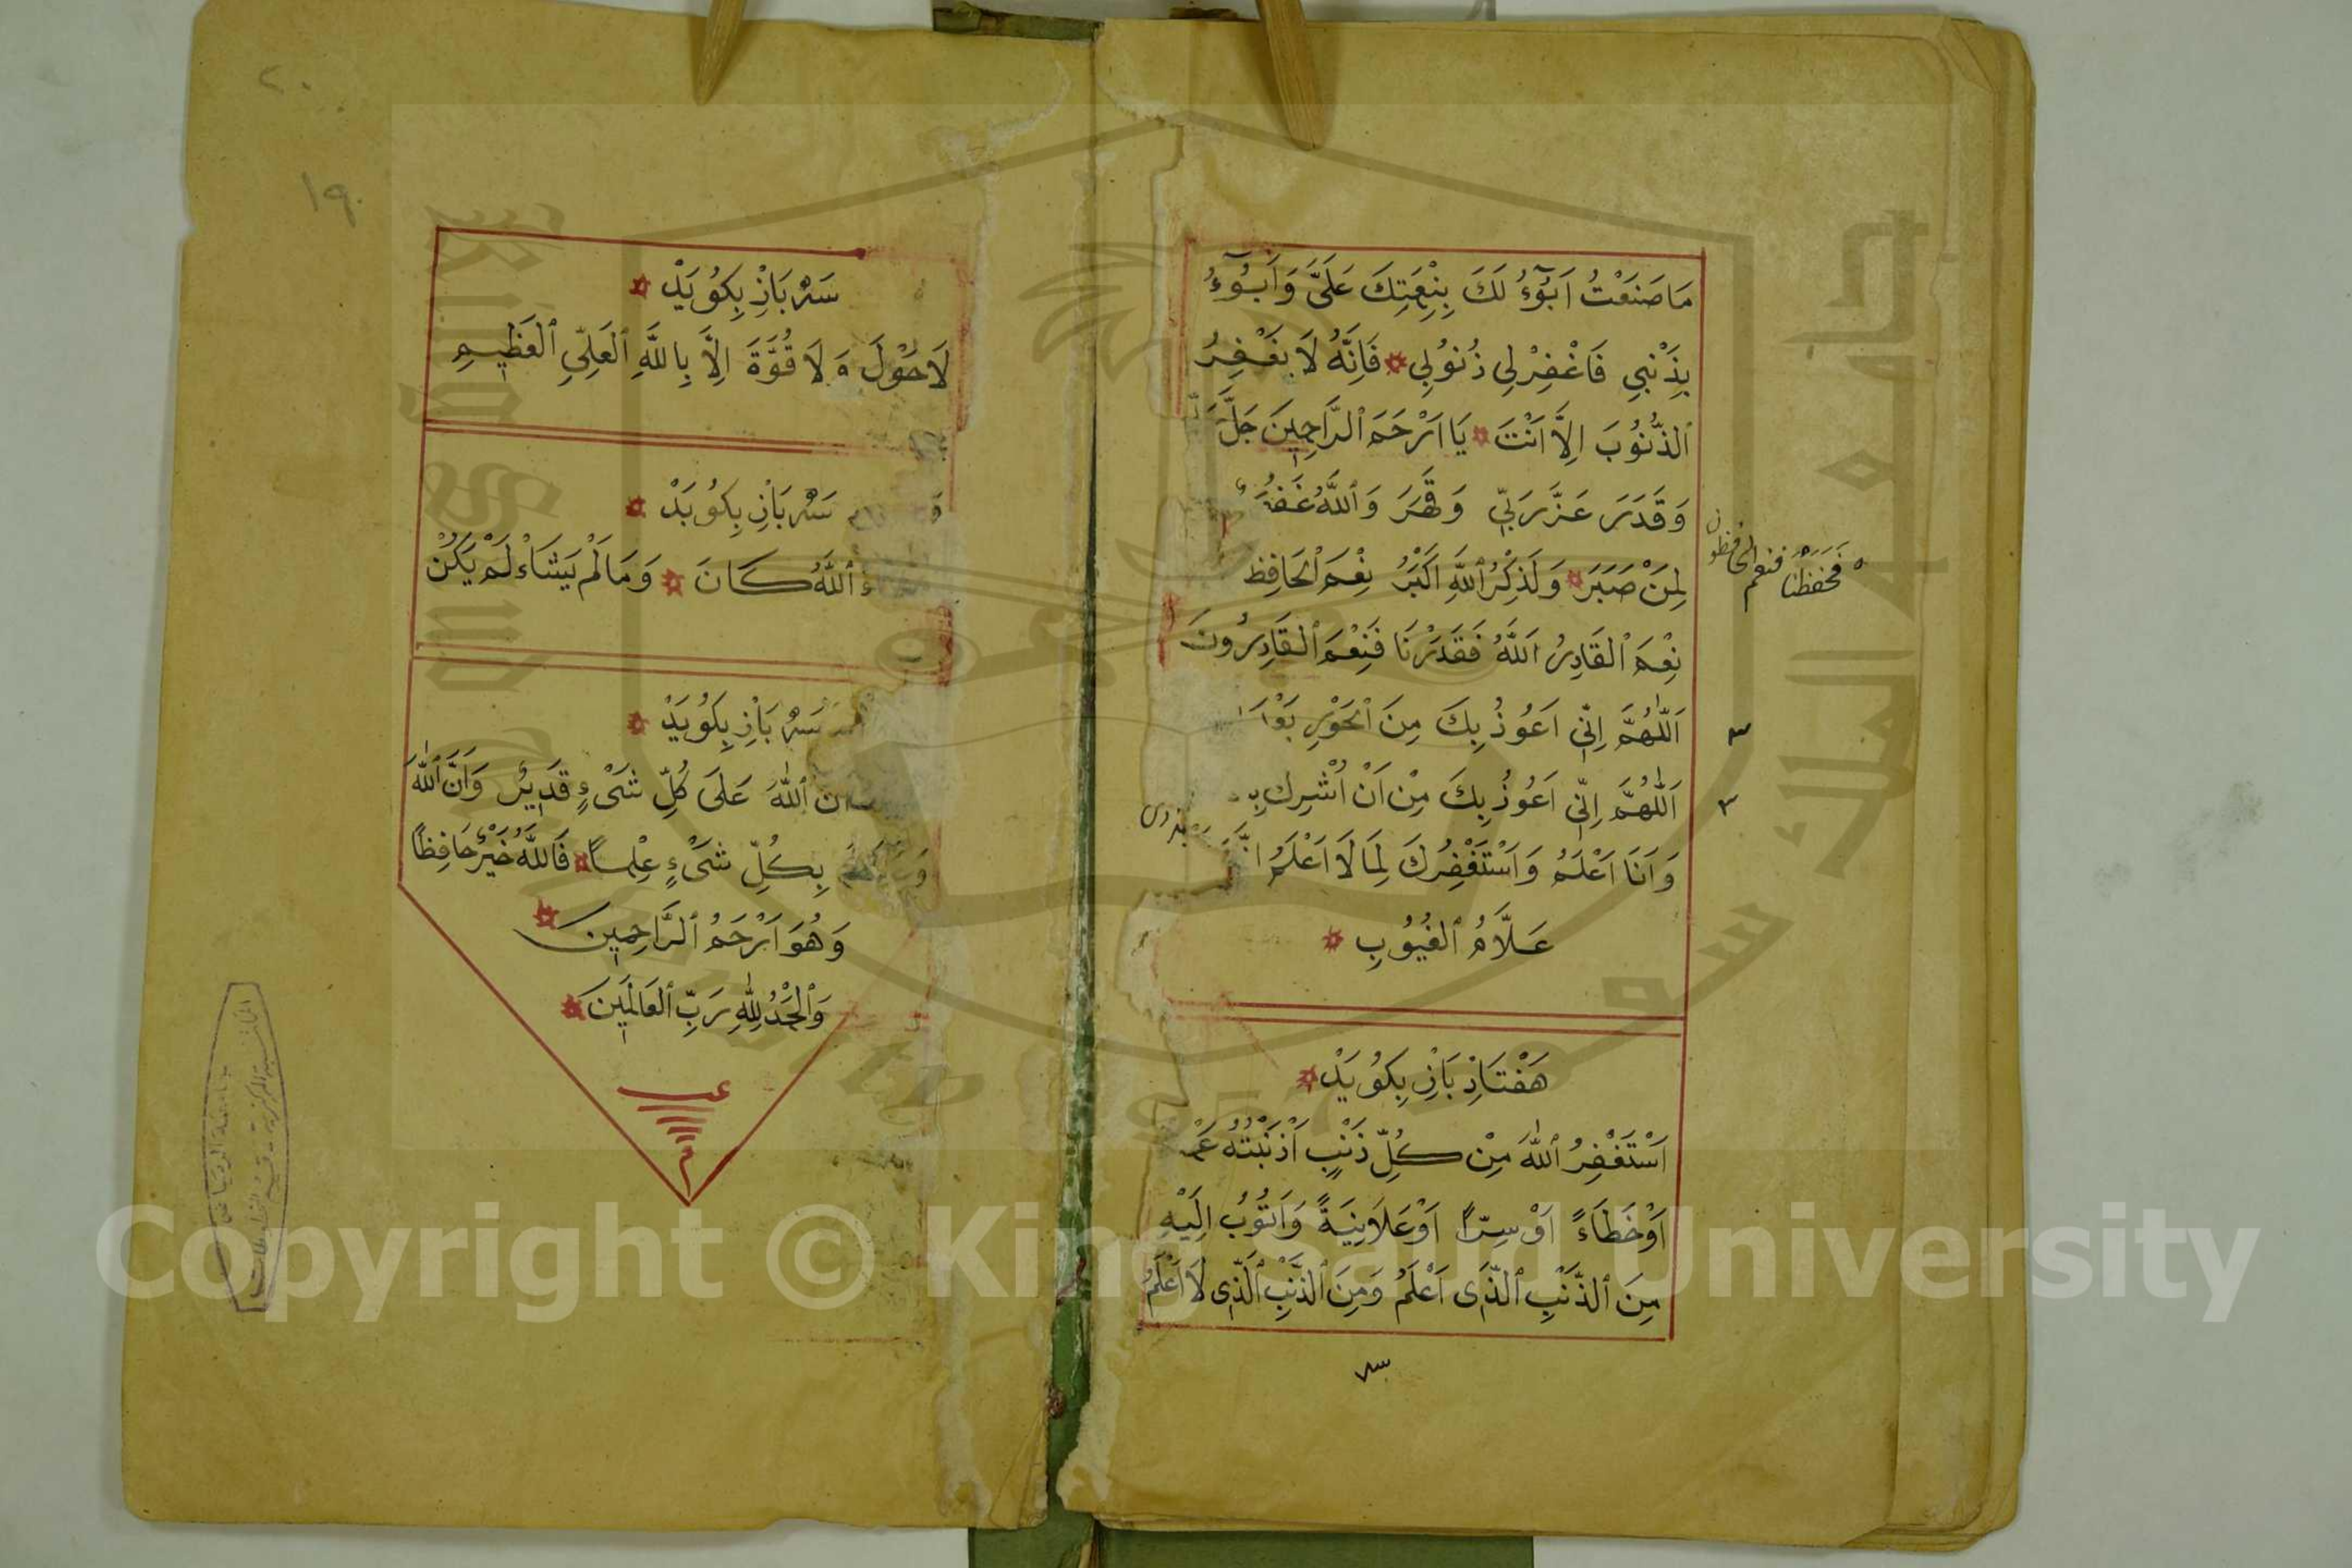 مَا صَنَعْتُ اَبُوٓءُ لَكَ بِنِعْمَتِكَ عَلَىَّ وَاَبُوٓءُ
بِذَنْبِي فَاغْفِرْلِي ذُنُوْبِي فَاِنَّهُ لَا يَغْفِرُ
ٱلذُّنُوْبَ اِلَّا اَنْتَ يَا اَرْحَمَ ٱلرَّاحِمِينَ جَلَّ
وَقَدَرَ عَزَّ رَبِّي وَقَهَرَ وَٱللَّهُ
لِمَنْ صَبَرَ وَلَذِكْرُ ٱللَّهِ اَكْبَرُ نِعْمَ ٱلْحَافِظ
فَحَفِظْنَا فنعم الحافظون
نِعْمَ ٱلْقَادِرُ اَللَّهُ فَقَدَرْنَا فَنِعْمَ ٱلْقَادِرُونَ
اَللّٰهُمَّ اِنِّي اَعُوْذُ بِكَ مِنَ ٱلْحَوْرِ بَعْدَ
٣
اَللّٰهُمَّ اِنِّي اَعُوْذُ بِكَ مِنْ اَنْ اُشْرِكَ
٣
وَاَنَا اَعْلَمُ وَاَسْتَغْفِرُكَ لِمَا لَا اَعْلَمُ
عَلَّامُ ٱلْغُيُوْبِ
هَفْتَاذِ بَاْرِ بِكُوْيَدْ
اَسْتَغْفِرُ ٱللّٰهَ مِنْ كُلِّ ذَنْبٍ اَذْنَبْتُهُ
اَوْ خَطَاءً اَوْ سِرًّا اَوْ عَلَانِيَةً وَاَتُوْبُ اِلَيْهِ
مِنَ ٱلذَّنْبِ ٱلَّذِى اَعْلَمُ وَمِنَ ٱلذَّنْبِ ٱلَّذِى لَا اَعْلَمُ
٢٠
١٩
سَهْ بَاْرِ بِكُوْيَدْ
لَا حَوْلَ وَلَا قُوَّةَ اِلَّا بِاللَّهِ ٱلْعَلِيِّ ٱلْعَظِيمِ
سَهْ بَاْرِ بِكُوْيَدْ
ٱللّٰهُ كَانَ وَمَا لَمْ يَشَاءْ لَمْ يَكُنْ
سَهْ بَاْرِ بِكُوْيَدْ
ٱللّٰهَ عَلَى كُلِّ شَىْءٍ قَدِيْرٌ وَاَنَّ ٱللّٰهَ
بِكُلِّ شَىْءٍ عِلْمًا فَاللَّهُ خَيْرٌ حَافِظًا
وَهُوَ اَرْحَمُ ٱلرَّاحِمِينَ
وَٱلْحَمْدُ لِلّٰهِ رَبِّ ٱلْعَالَمِينَ
Copyright © King Saud University